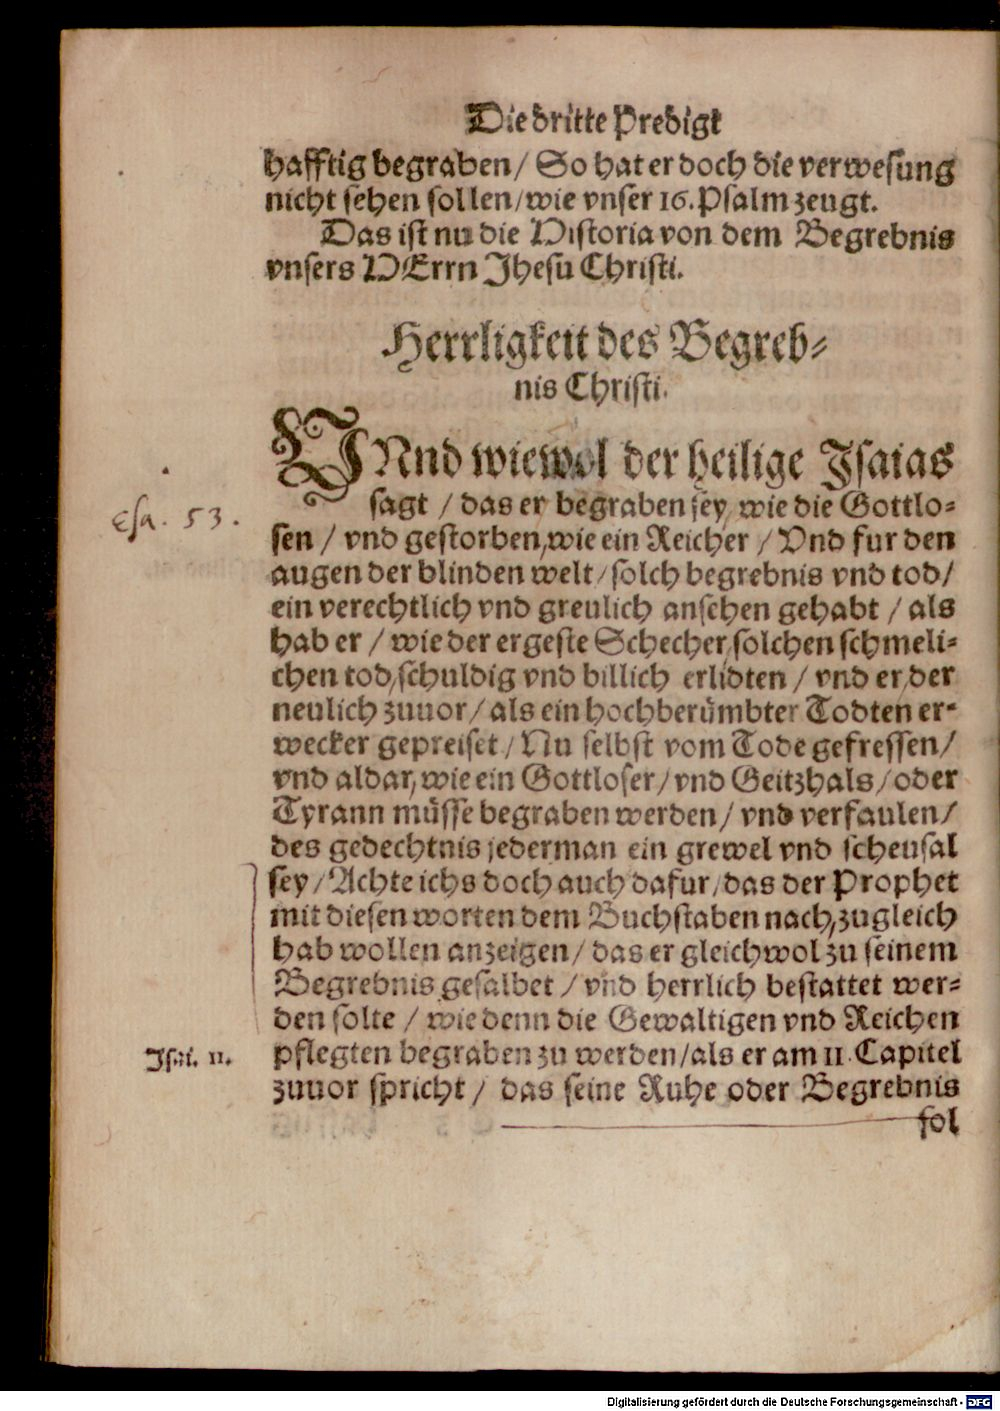 Die dritte Predigt
hafftig begraben / So hat er doch die verwesung
nicht sehen sollen / wie vnser 16. Psalm zeugt.
Das ist nu die Historia von dem Begrebnis
vnsers HErrn Jhesu Christi.
Herrligkeit des Begreb-
nis Christi.
VNnd wiewol der heilige Jsaias
sagt / das er begraben sey, wie die Gottlo-
Esa. 53.
sen / vnd gestorben, wie ein Reicher / Vnd fur den
augen der blinden welt / solch begrebnis vnd tod /
ein verechtlich vnd greulich ansehen gehabt / als
hab er / wie der ergeste Schecher, solchen schmeli-
chen tod, schuldig vnd billich erlidten / vnd er, der
neulich zuuor / als ein hochberümbter Todten er-
wecker gepreiset / Nu selbst vom Tode gefressen /
vnd aldar, wie ein Gottloser / vnd Geitzhals / oder
Tyrann müsse begraben werden / vnd verfaulen /
des gedechtnis jederman ein grewel vnd scheusal
sey / Achte ichs doch auch dafur, das der Prophet
mit diesen worten dem Buchstaben nach, zugleich
hab wollen anzeigen / das er gleichwol zu seinem
Begrebnis gesalbet / vnd herrlich bestattet wer-
den solte / wie denn die Gewaltigen vnd Reichen
Jsai. 11.
pflegten begraben zu werden / als er am 11. Capitel
zuuor spricht / das seine Ruhe oder Begrebnis
sol
Digitalisierung gefördert durch die Deutsche Forschungsgemeinschaft - DFG